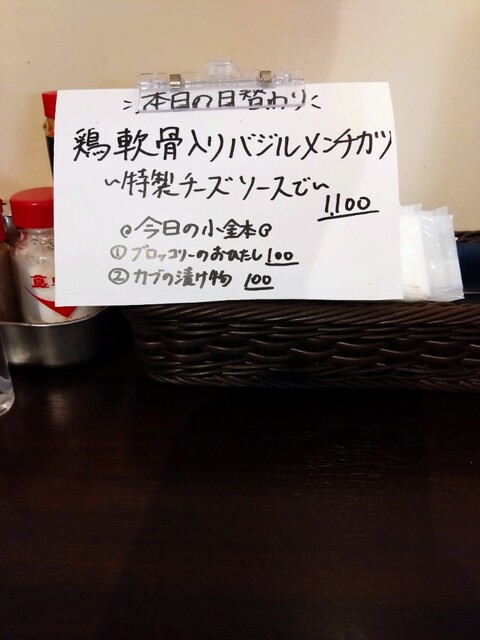 本日の日替わり
鶏軟骨入りバジルメンチカツ
〜特製チーズソースで〜
1,100
今日の小鉢
① ブロッコリーのおひたし 100
② カブの漬け物 100